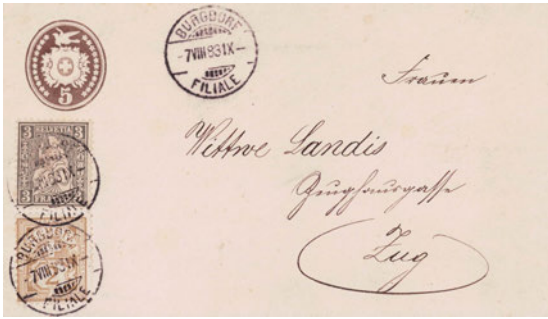 5
BURGDORF
-7VIII83IX-
FILIALE
Frauen
Wittwe Landis
Zeughausgasse
Zug
3 HELVETIA 3
3 FRANCO 3
BURGDORF
-7VIII83IX-
FILIALE